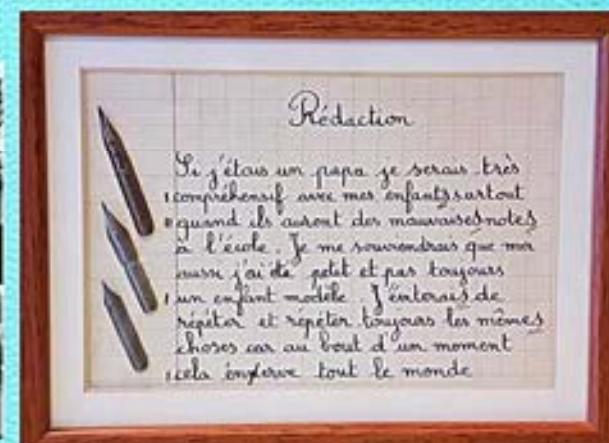 Rédaction
Si j'étais un papa je serais très
compréhensif avec mes enfants surtout
quand ils auront des mauvaises notes
à l'école. Je me souviendrais que moi
aussi j'ai été petit et pas toujours
un enfant modèle. J'éviterais de
répéter et répéter toujours les mêmes
choses car au bout d'un moment
cela énerve tout le monde